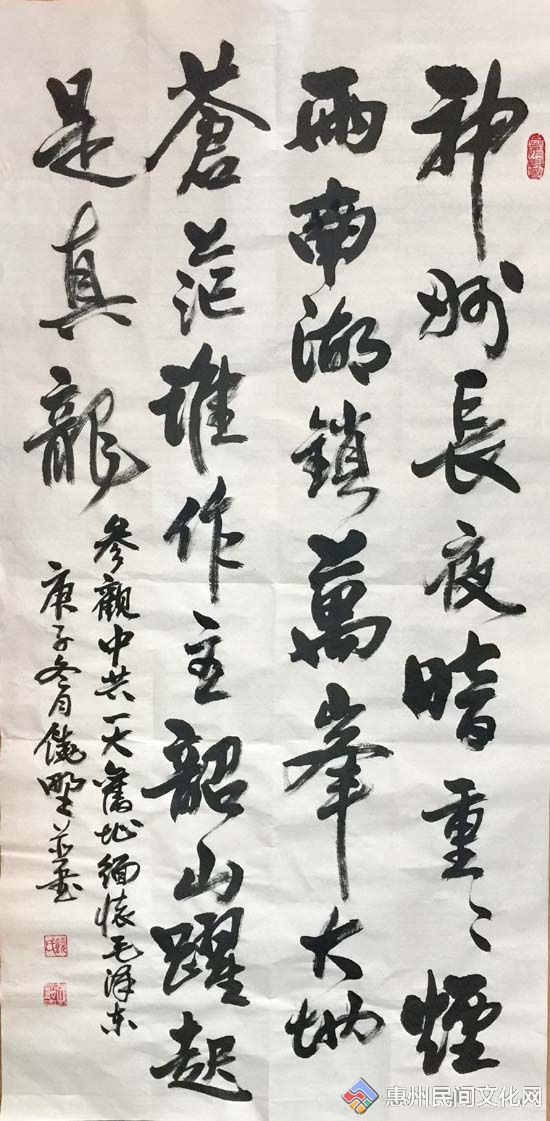 神州長夜暗重〻煙
雨南湖鎖萬峯大地
蒼茫誰作主韶山躍起
是真龍
參觀中共一大舊址緬懷毛泽东
庚子冬月饒野並書
惠州民间文化网